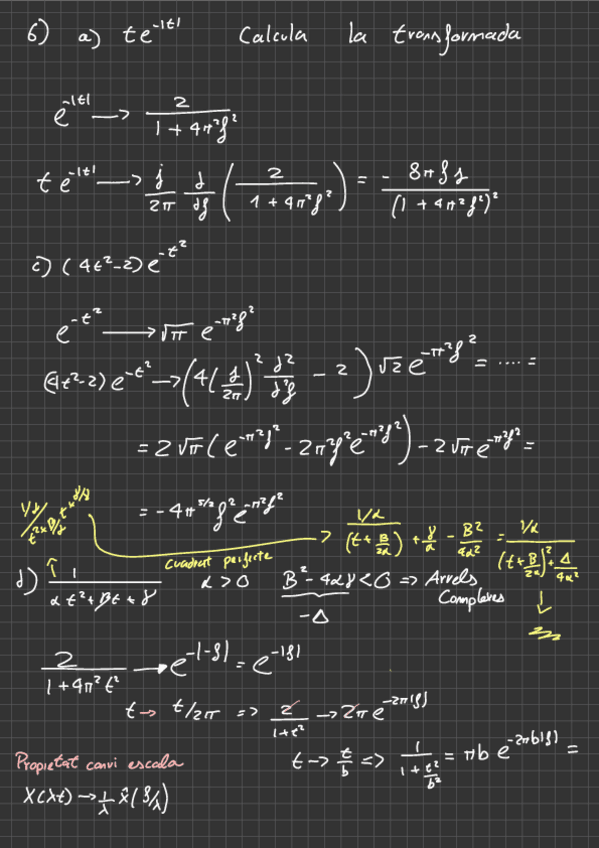 6) a) t e^{-|t|} Calcula la transformada
e^{-|t|} → 2/(1 + 4π²f²)
t e^{-|t|} → j/2π d/df (2/(1 + 4π²f²)) = - 8πfj/(1 + 4π²f²)²
c) (4t²-2) e^{-t²}
e^{-t²} → √π e^{-π²f²}
(4t²-2) e^{-t²} → (4(j/2π)² d²/d²f - 2) √2 e^{-π²f²} = ···· =
= 2√π (e^{-π²f²} - 2π²f² e^{-π²f²}) - 2√π e^{-π²f²} =
= -4π^{5/2} f² e^{-π²f²}
(1/α)/((t + B/2α)) + γ/α - B²/4α² = (1/α)/((t + B/2α)² + Δ/4α²)
Quadrat perfecte
d) 1/(αt² + βt + γ) α > 0 B² - 4αγ < 0 => Arrels Complexes
-Δ
2/(1 + 4π²t²) → e^{-|-f|} = e^{-|f|}
t → t/2π => 2/(1+t²) → 2π e^{-2π|f|}
Propietat canvi escala
t → t/b => 1/(1 + t²/b²) = πb e^{-2πb|f|} =
X(λt) → 1/λ x̂(f/λ)